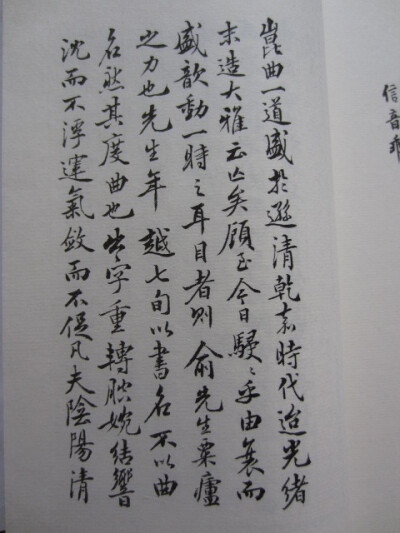 崑曲一道盛於遜清乾嘉時代迨光緒
末造大雅云亡矣顧至今日駸〻乎由衰而
盛歆動一時之耳目者則俞先生粟廬
之力也先生年越七旬以書名不以曲
名然其度曲也出字重轉腔婉結響
沈而不浮運氣斂而不促凡夫陰陽清
信音